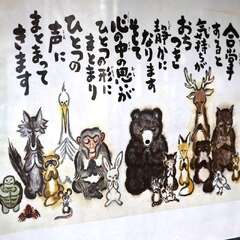 合掌
すると
気持ちが
おちつき
静かに
なります
そして
心の中の思いが
ひとつの形に
まとまり
ひとつの
声に
まとまって
きます